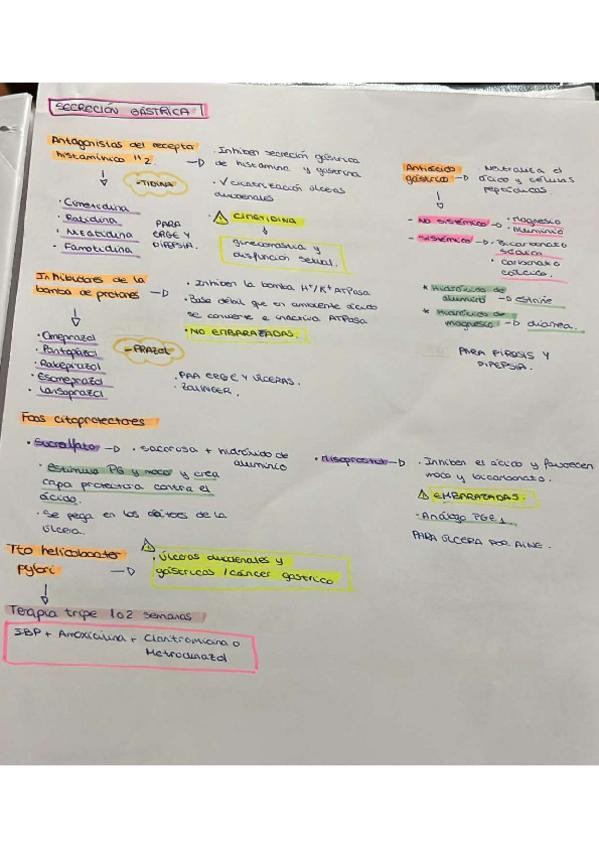 SECRECIÓN GÁSTRICA
Antagonistas del recepto
histamínico H2.
-TIDINA
· Cimetidina
· Ratidina
· Nizatidina
· Famotidina
PARA
ERGE Y
DIPEPSIA.
· Inhiben secreción gástrica
de histamina y gastrina
· V cicatrización úlceras
duodenales
CIMETIDINA
ginecomastia y
disfunción sexual.
Antiácido
gástrico
Neutraliza el
ácido y células
pépticas
- NO SISTÉMICO
- magnesio
- aluminio
- SISTÉMICO
- Bicarbonato
sódico
- carbonato
cálcico.
* Hidróxido de
aluminio → estriñe
* Hidróxido de
magnesio → diarrea.
PARA PIROSIS Y
DIPEPSIA.
Inhibidores de la
bomba de protones
-PRAZOL
· Omeprazol
· Pantoprazol
· Rabeprazol
· Esomeprazol
· Lansoprazol
· Inhiben la bomba H+/K+ ATPasa
· Base débil que en ambiente ácido
se convierte e inactiva ATPasa
· NO EMBARAZADAS.
· PARA ERGE Y ÚLCERAS.
· ZOLLINGER.
Fcos citoprotectores
· Sucralfato → · sacarosa + hidróxido de
aluminio
· estimula PG y moco y crea
capa protectora contra el
ácido.
· Se pega en los cráteres de la
úlcera.
· Misoprostol → · Inhiben el ácido y favorecen
moco y bicarbonato.
EMBARAZADAS.
· Análogo PGE1
PARA ÚLCERA POR AINE.
Tto helicobacter
pylori
· Úlceras duodenales y
gástricas / cáncer gástrico
Terapia triple 1o2 semanas
IBP + Amoxicilina + Claritromicina o
Metronidazol